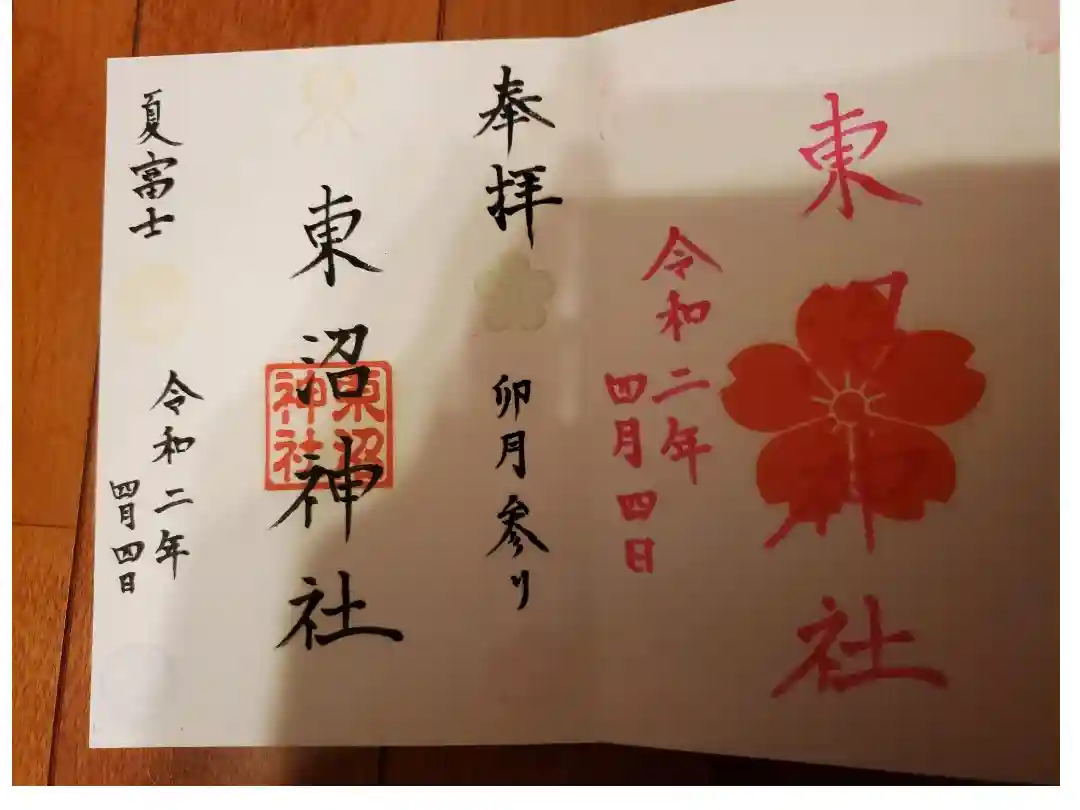 東沼神社
令和二年
四月四日
奉拝
卯月参り
東沼神社
東沼
神社
夏富士
令和二年
四月四日